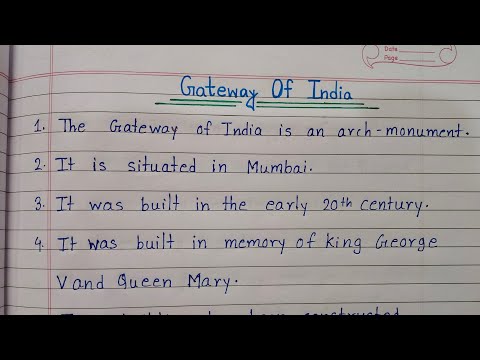 Date
Page
Gateway Of India
1. The Gateway of India is an arch-monument.
2. It is situated in Mumbai.
3. It was built in the early 20th century.
4. It was built in memory of King George
V and Queen Mary.